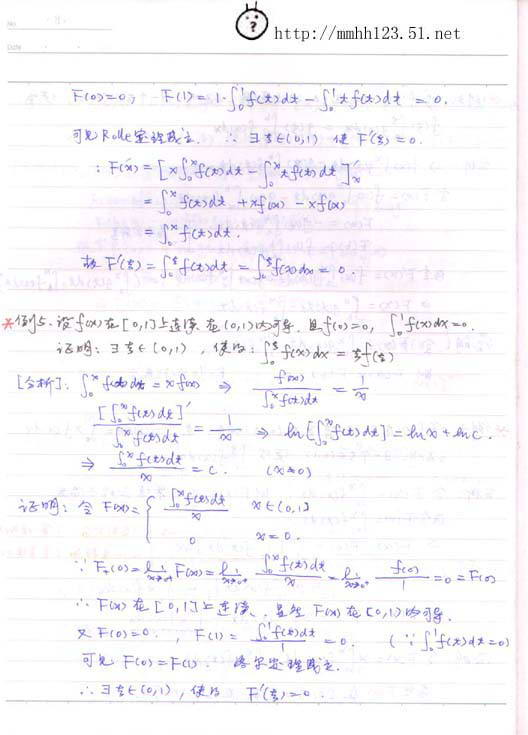 http://mmhh123.51.net
No.
Date
F(0)=0, F(1)=1·∫₀¹f(t)dt − ∫₀¹tf(t)dt = 0.
可见Rolle定理成立. ∴ ∃ξ∈(0,1) 使 F'(ξ)=0.
∵ F'(x) = [x∫₀ˣf(t)dt − ∫₀ˣtf(t)dt]'ₓ
= ∫₀ˣf(t)dt + xf(x) − xf(x)
= ∫₀ˣf(t)dt.
故 F'(ξ) = ∫₀^ξ f(t)dt = ∫₀^ξ f(x)dx = 0.
*例5. 设f(x)在[0,1]上连续 在(0,1)内可导. 且f(0)=0, ∫₀¹f(x)dx=0.
证明: ∃ξ∈(0,1), 使得: ∫₀^ξ f(x)dx = ξf(ξ)
[分析]: ∫₀ˣf(t)dt = xf(x) ⇒ f(x)/∫₀ˣf(t)dt = 1/x
[∫₀ˣf(t)dt]'/∫₀ˣf(t)dt = 1/x ⇒ ln[∫₀ˣf(t)dt] = lnx + lnc.
⇒ ∫₀ˣf(t)dt/x = c. (x≠0)
证明: 令 F(x) = { ∫₀ˣf(t)dt/x x∈(0,1]
0 x=0.
∵ F₊(0) = lim x→0⁺ F(x) = lim x→0⁺ ∫₀ˣf(t)dt/x = lim x→0⁺ f(x)/1 = 0 = F(0)
∴ F(x)在[0,1]上连续. 显然 F(x)在(0,1)内可导.
又 F(0)=0, F(1) = ∫₀¹f(t)dt/1 = 0. (∵∫₀¹f(t)dt=0)
可见 F(0)=F(1). 洛尔定理成立.
∴ ∃ξ∈(0,1), 使得 F'(ξ)=0.